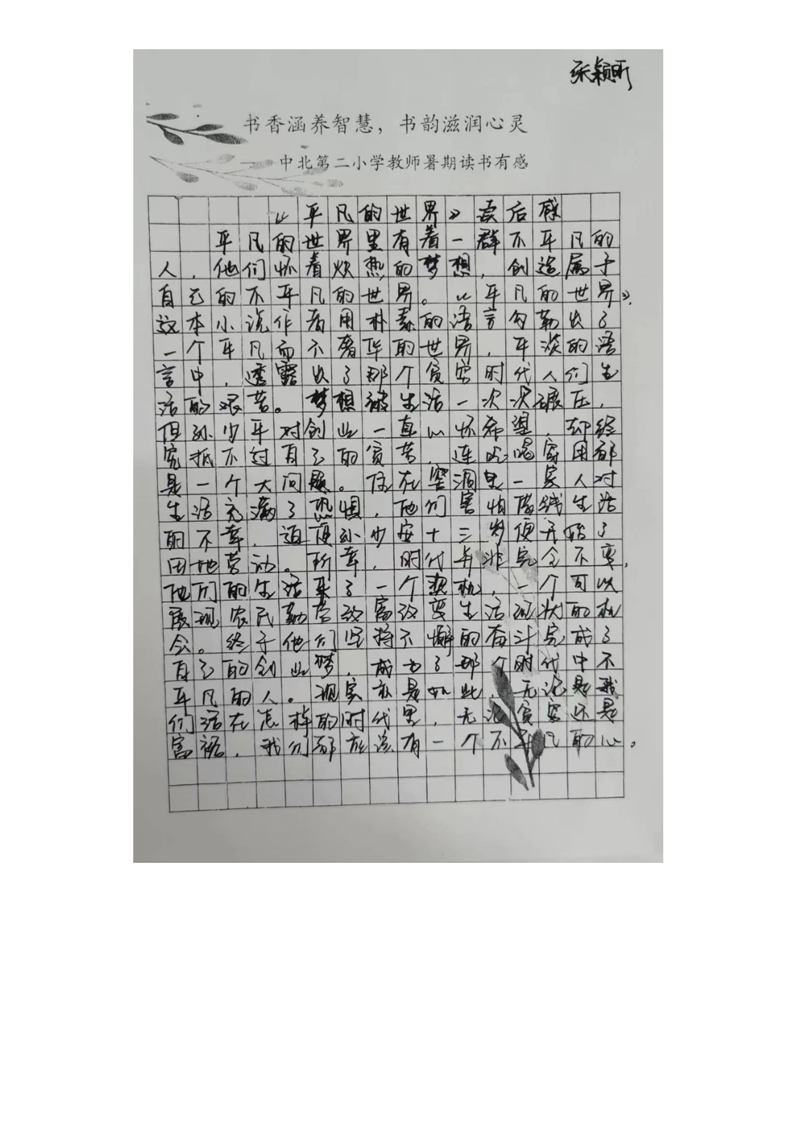 张颖昕
书香涵养智慧，书韵滋润心灵
——中北第二小学教师暑期读书有感
《平凡的世界》读后感
平凡的世界里有着一群不平凡的
人，他们怀着炽热的梦想，创造属于
自己的不平凡的世界。《平凡的世界》
这本小说作者用朴素的语言勾勒出了
一个平凡而不奢华的世界，平淡的语
言中，透露出了那个贫穷时代人们生
活的艰苦。梦想被生活一次次碾压，
但孙少平对创业一直心怀希望，却终
究抵不过自己的贫苦，连吃喝家用都
是一个大问题。住在窑洞里一家人对
生活充满了恐惧，他们害怕降线生活
的不幸，迫使孙少安十三岁便开始了
田地劳动。所幸，时代并非完全不幸，
他们的生活来了一个契机，一个可以
展现农民勤劳致富改变生活现状的机
会。终于他们坚持不懈的奋斗完成了
自己的创业梦，成为了那个时代中不
平凡的人。现实亦是如此，无论是我
们活在怎样的时代里，无论贫穷还是
富裕，我们都应该有一个不平凡的心。